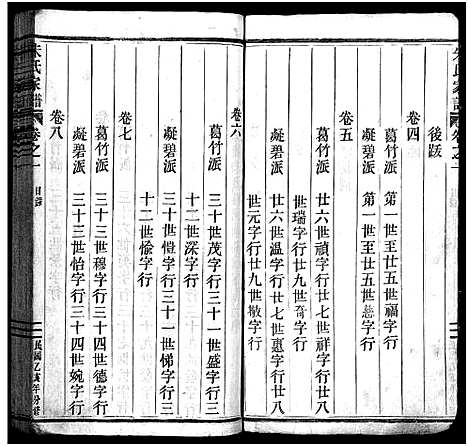 後跋
卷四
葛竹派 第一世至廿五世福字行
凝碧派 第一世至廿五世慈字行
卷五
葛竹派 廿六世禎字行廿七世祥字行廿八
世瑞字行廿九世奇字行
凝碧派 廿六世溫字行廿七世惠字行廿八
世元字行廿九世敬字行
卷六
葛竹派 三十世茂字行三十一世盛字行三
十二世深字行
凝碧派 三十世愷字行三十一世悌字行三
十二世愉字行
卷七
葛竹派 三十三世穆字行三十四世德字行
凝碧派 三十三世怡字行三十四世婉字行
卷八
朱氏家譜 卷之一 目錄 民國乙亥年份